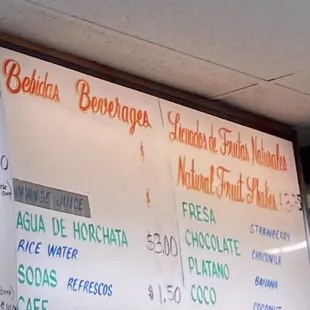 Bebidas Beverages
ORANGE JUICE
AGUA DE HORCHATA $3.00
RICE WATER
SODAS REFRESCOS $1.50
CAFE
Licuados de Frutas Naturales
Natural Fruit Shakes
FRESA STRAWBERRY
CHOCOLATE
PLATANO BANANA
COCO COCONUT